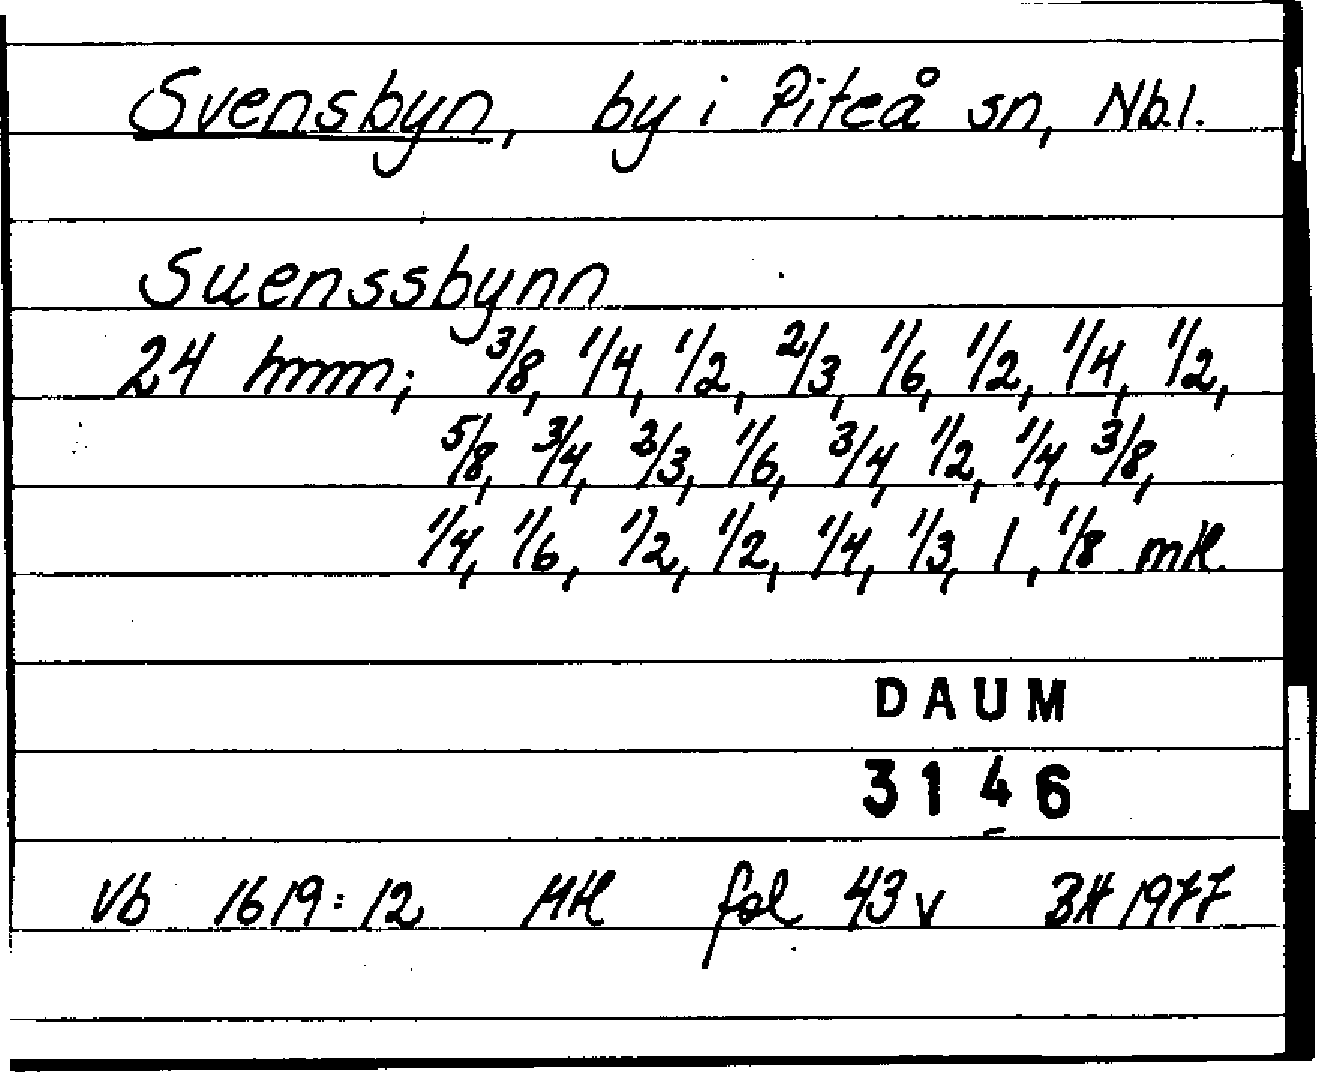 Svensbyn, by i Piteå sn, Nb.l.
Suenssbynn
24 hmm; 3/8, 1/4, 1/2, 2/3, 1/6, 1/2, 1/4, 1/2,
5/8, 3/4, 2/3, 1/6, 3/4, 1/2, 1/4, 3/8,
1/4, 1/6, 1/2, 1/2, 1/4, 1/3, 1, 1/8 mtl.
DAUM
3146
Vb 1619:12 Mtl fol 43v BH 1977